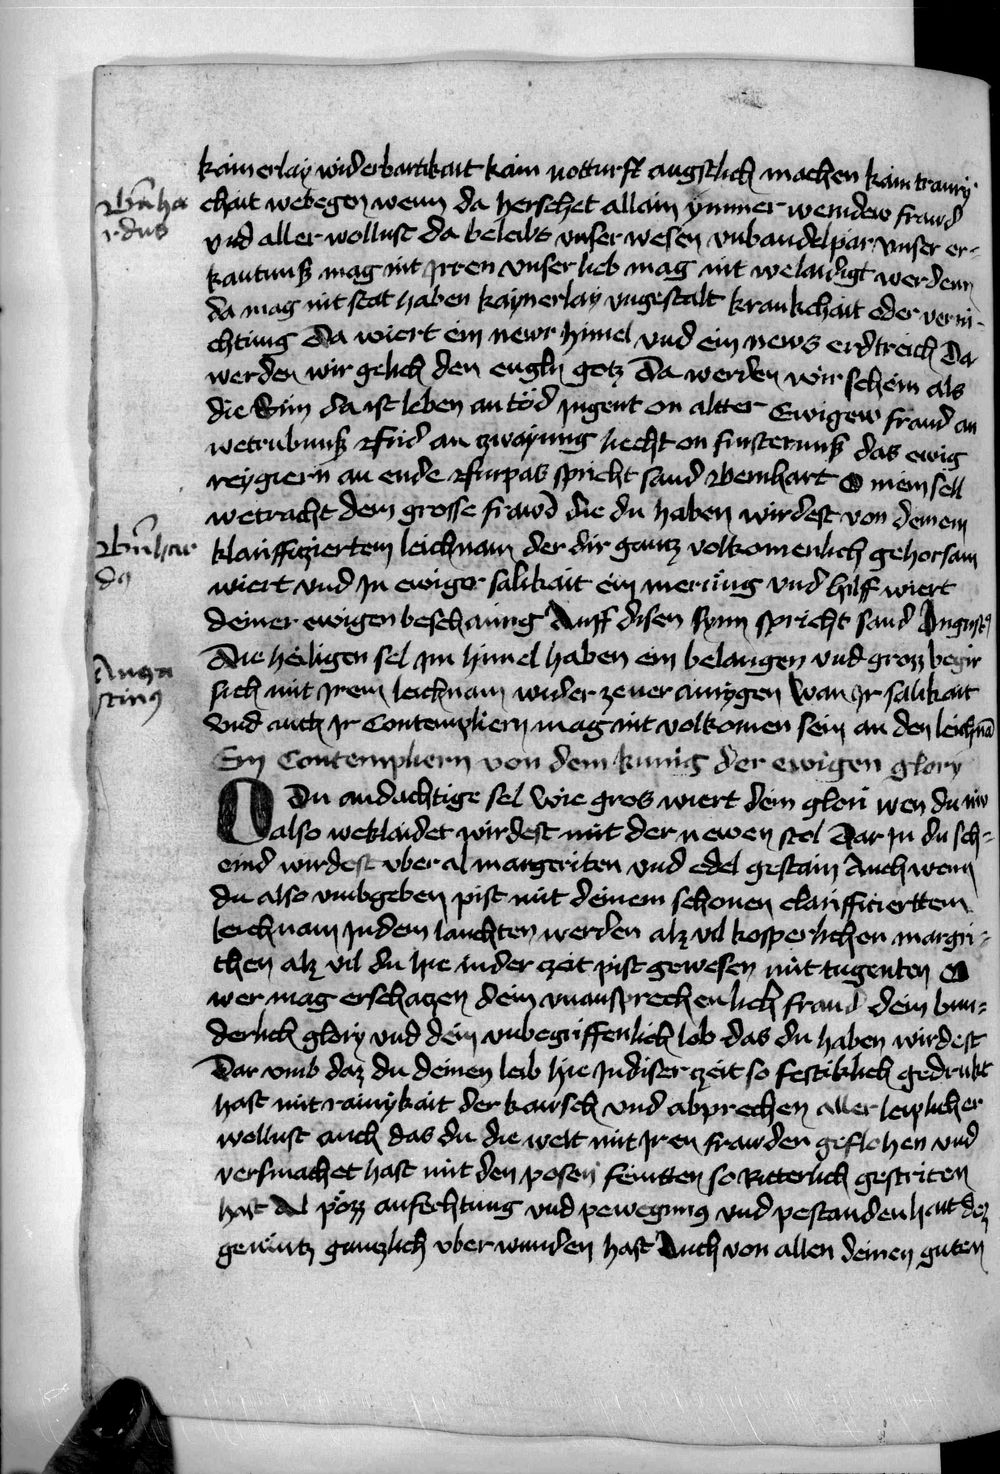 kainerlay widerbartikait kain notturft angstlich machen kain trauri
Bn̄ha
rdus
chait webegen wenn da herschet allain ymmer werndew frawd
vnd aller wollust da beleibs vnser wesen vnbandelpar vnser er-
kantnuß mag nit Irren vnser lieb mag nit welaidigt werdenn
da mag nit stat haben kaynerlay vngestalt krankchait oder verni-
chtung Da wiert ein newr himel vnd ein news erdtreich Da
werden wir gelich den engln gotz Da werden wir schein als
die Sun da ist leben an tod Jugent on altter Ewigew fraud an
wetrubnuß Frid an zwayung liecht on finsternuß das ewig
reygiern an ende Furpas spricht sand Bernhart O mein sell
wetracht dein grosse frawd die du haben wirdest von deinem
Bn̄har
dq
klariffiziertem leichnam der dir gantz volkomenlich gehorsam
wiert vnd Jn ewiger salikait ein merung vnd hilff wiert
deiner ewigen beschauung Auff disen synn spricht sand Augustq
Augu
stinq
Die heiligen sel Jm himel haben ein belangen vnd grozz begir
sich mit Jrem leichnam wider ze uer ainygen Wan Jr salikait
Vnd auch Jr Contempliern mag nit volkomen sein an den leichnā
Ein Contempliern von dem kunig der ewigen glory
O Du andachtige sel Wie gros wiert dein glori wen du nw
also weklaidet wirdest mit der newen stol Dar Jn du sch-
eind wirdest vber al margeriten vnd edel gestain Auch wenn
du also vmbgeben pist mit deinem schonen clarifficierttem
leichnam Jn dem lauchten werden alz vil kosperlichen margri-
then alz vil du hie in der czeit pist gewesen mit tugenten O
wer mag erschatzen dein vnausprechenlich fraud dein bun-
derlich glory vnd dein vnbegriffenlich lob das du haben wirdest
Dar vmb daz du deinen leib hie Jn diser czeit so festiklich gedrukt
hast mit rainykait der kawsch vnd abprechen aller leiplicher
wollust auch das du die welt mit Jren frawden geflohen vnd
versmachet hast mit den posen feintten so Ritterlich gestriten
hast Al pözz anfechtung vnd pewegung vnd pestandenhait dez
gemütz gantzlich vber wunden hast Auch von allen deinen guten